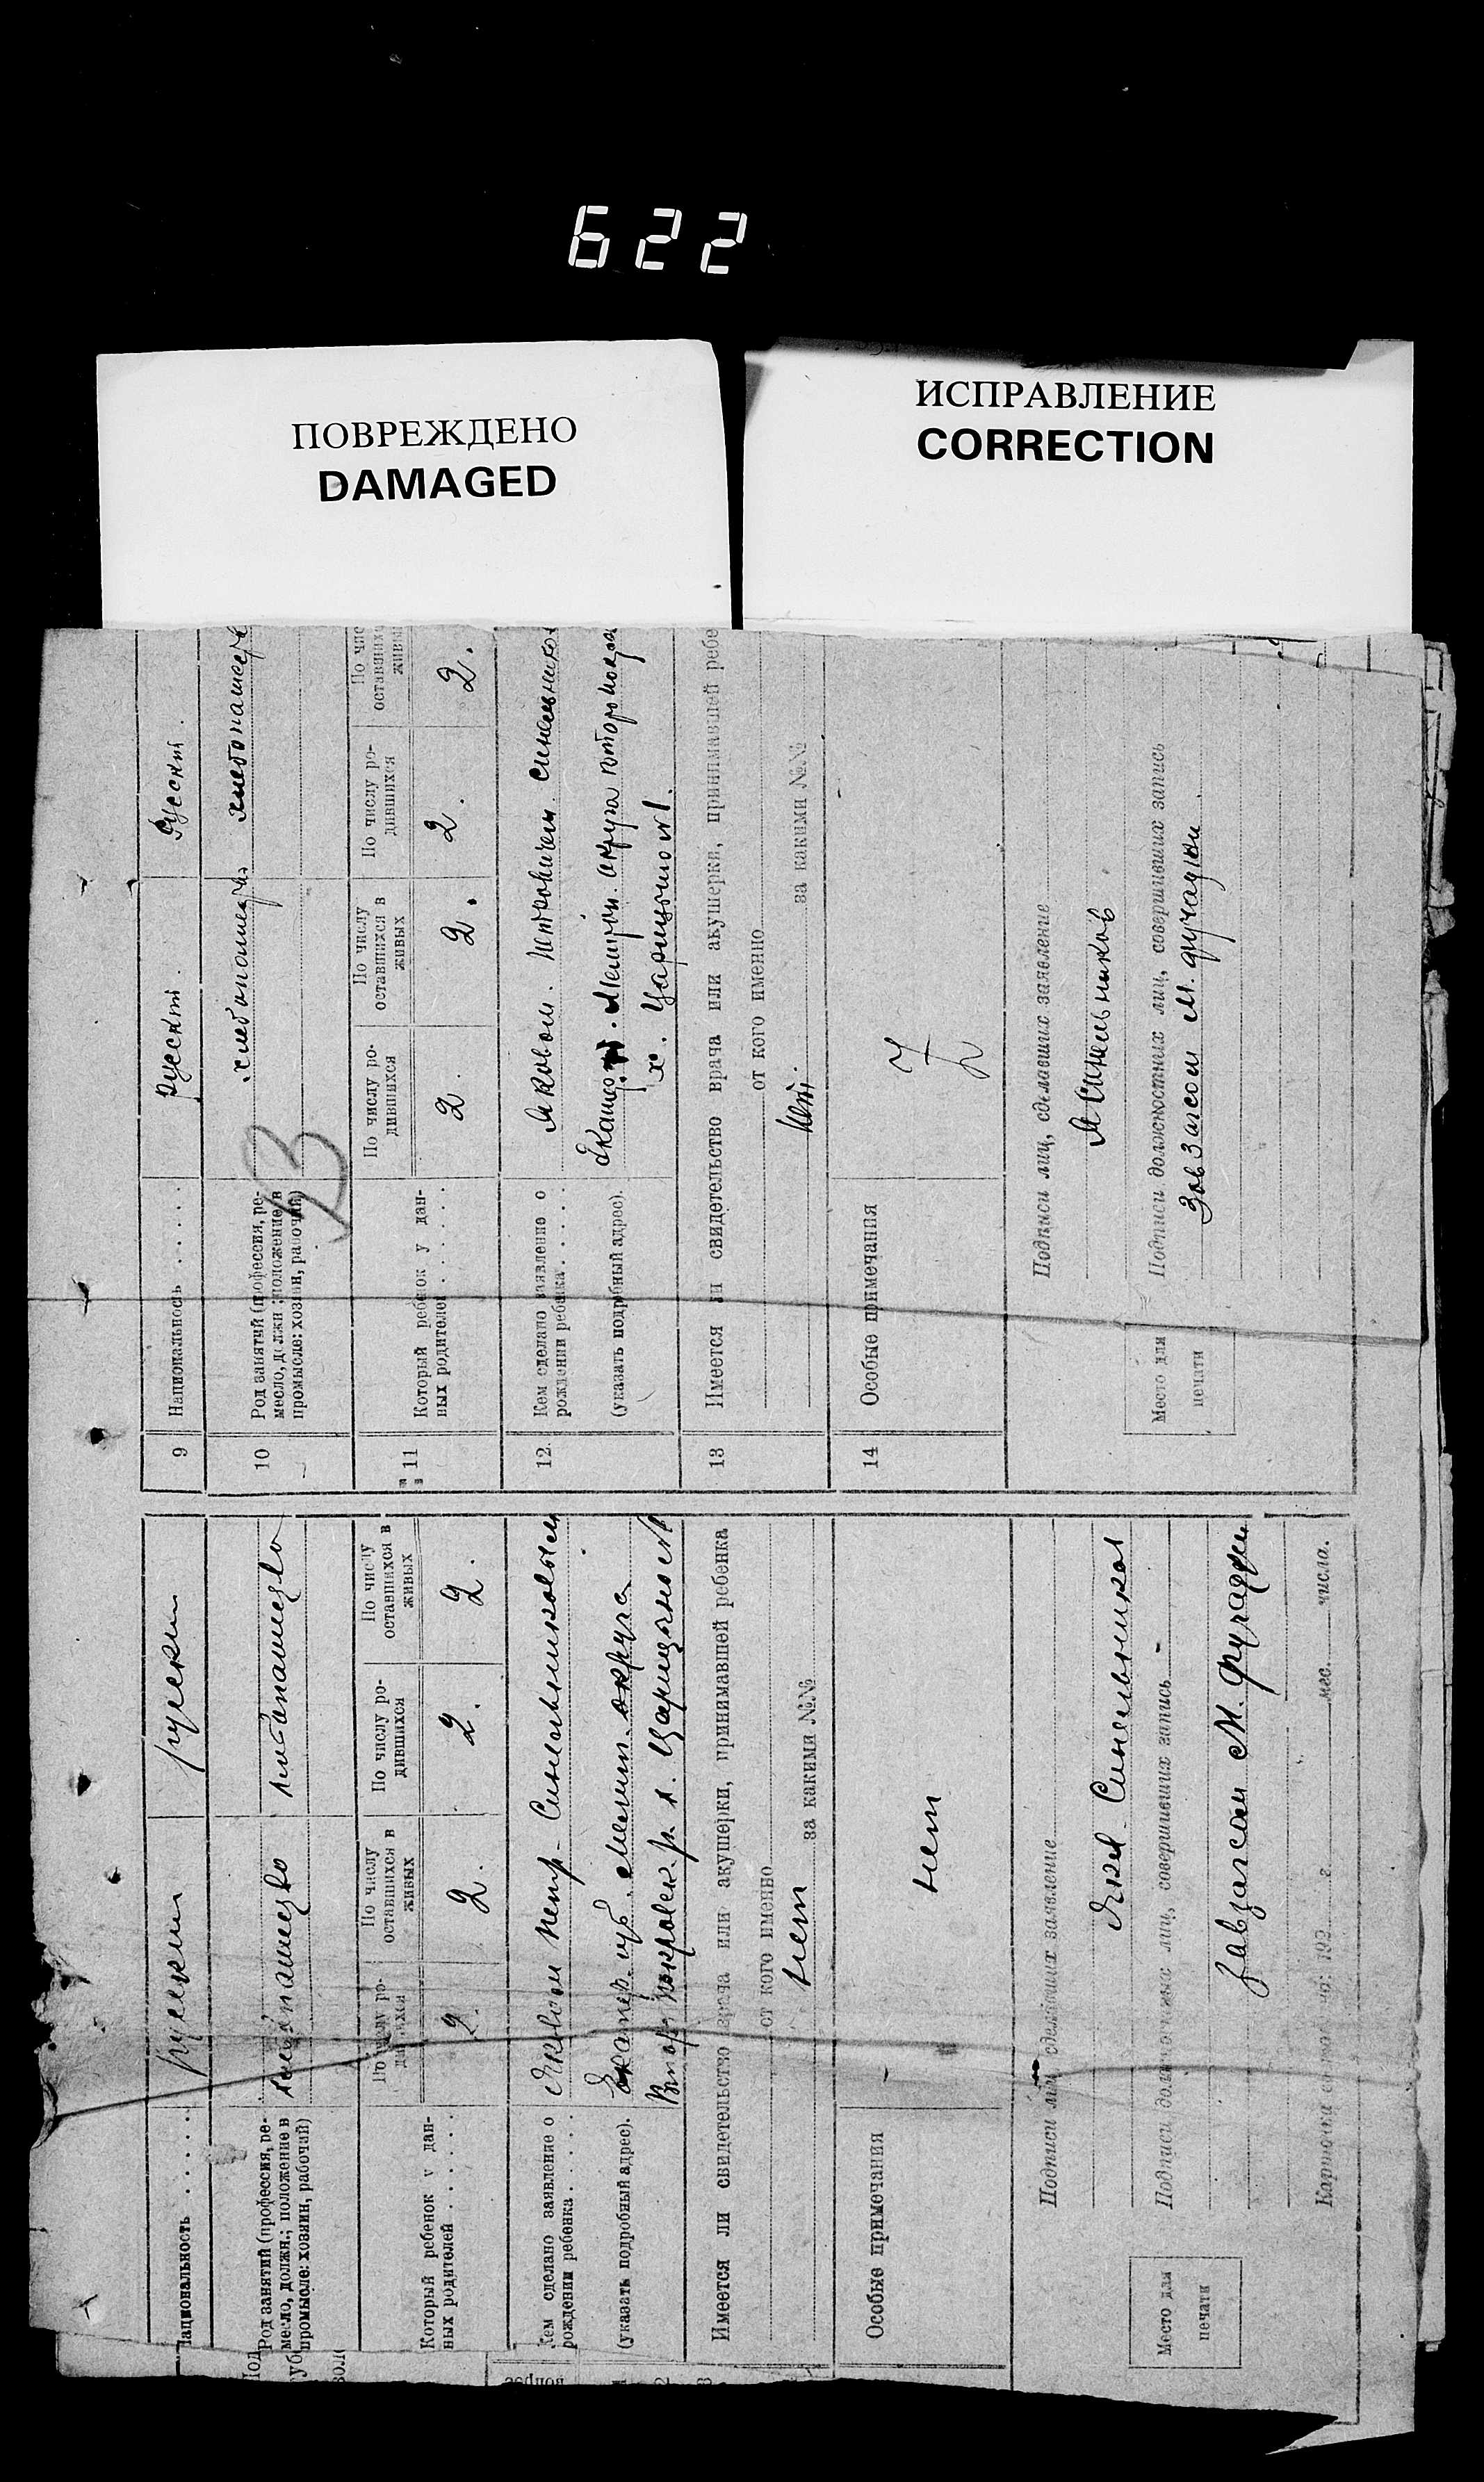 622
ПОВРЕЖДЕНО
DAMAGED
ИСПРАВЛЕНИЕ
CORRECTION
Национальность . . . . . .
русский
русский
Род занятий (профессия, ре-
месло, должн.; положение в
промысле: хозяин, рабочий)
хлебопашество
хлебопашество
Который ребенок у дан-
ных родителей . . . . . .
По числу ро-
дившихся
По числу
оставшихся в
живых
По числу ро-
дившихся
По числу
оставшихся в
живых
2.
2.
2.
2.
Кем сделано заявление о
рождении ребенка . . . . .
(указать подробный адрес).
Яковом Петр. Синельниковым
Екатер. губ. Мелит. округа
Второ покровск. р. х. Царицыно №1
Имеется ли свидетельство врача или акушерки, принимавшей ребенка
от кого именно
нет за какими №№
Особые примечания
нет
Подписи лиц, сделавших заявление
Яков Синельников
Подписи должностных лиц, совершивших запись
Завзагсом М.
Место для
печати
192 г. мес. числа.
9 Национальность . . . . .
Русский
Русский
10 Род занятий (профессия, ре-
месло, должн.; положение в
промысле: хозяин, рабочий)
хлебопашец
хлебопашец
11 Который ребенок у дан-
ных родителей . . . . . .
По числу ро-
дившихся
По числу
оставшихся в
живых
По числу ро-
дившихся
По чис
оставшихс
живы
2.
2.
2.
2.
12. Кем сделано заявление о
рождении ребенка . . . . .
(указать подробный адрес).
Яковом Петровичем Синельнико
Мелитоп. округа
х. Царицыно №1.
13 Имеется ли свидетельство врача или акушерки, принимавшей ребе
от кого именно
нет. за какими №№
14 Особые примечания
Подписи лиц, сделавших заявление
Я Синельников
Подписи должностных лиц, совершивших запись
Зав Загсом М.
Место для
печати